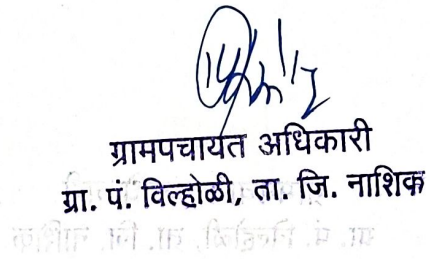 ग्रामपचायत अधिकारी
ग्रा. पं. विल्होळी, ता. जि. नाशिक